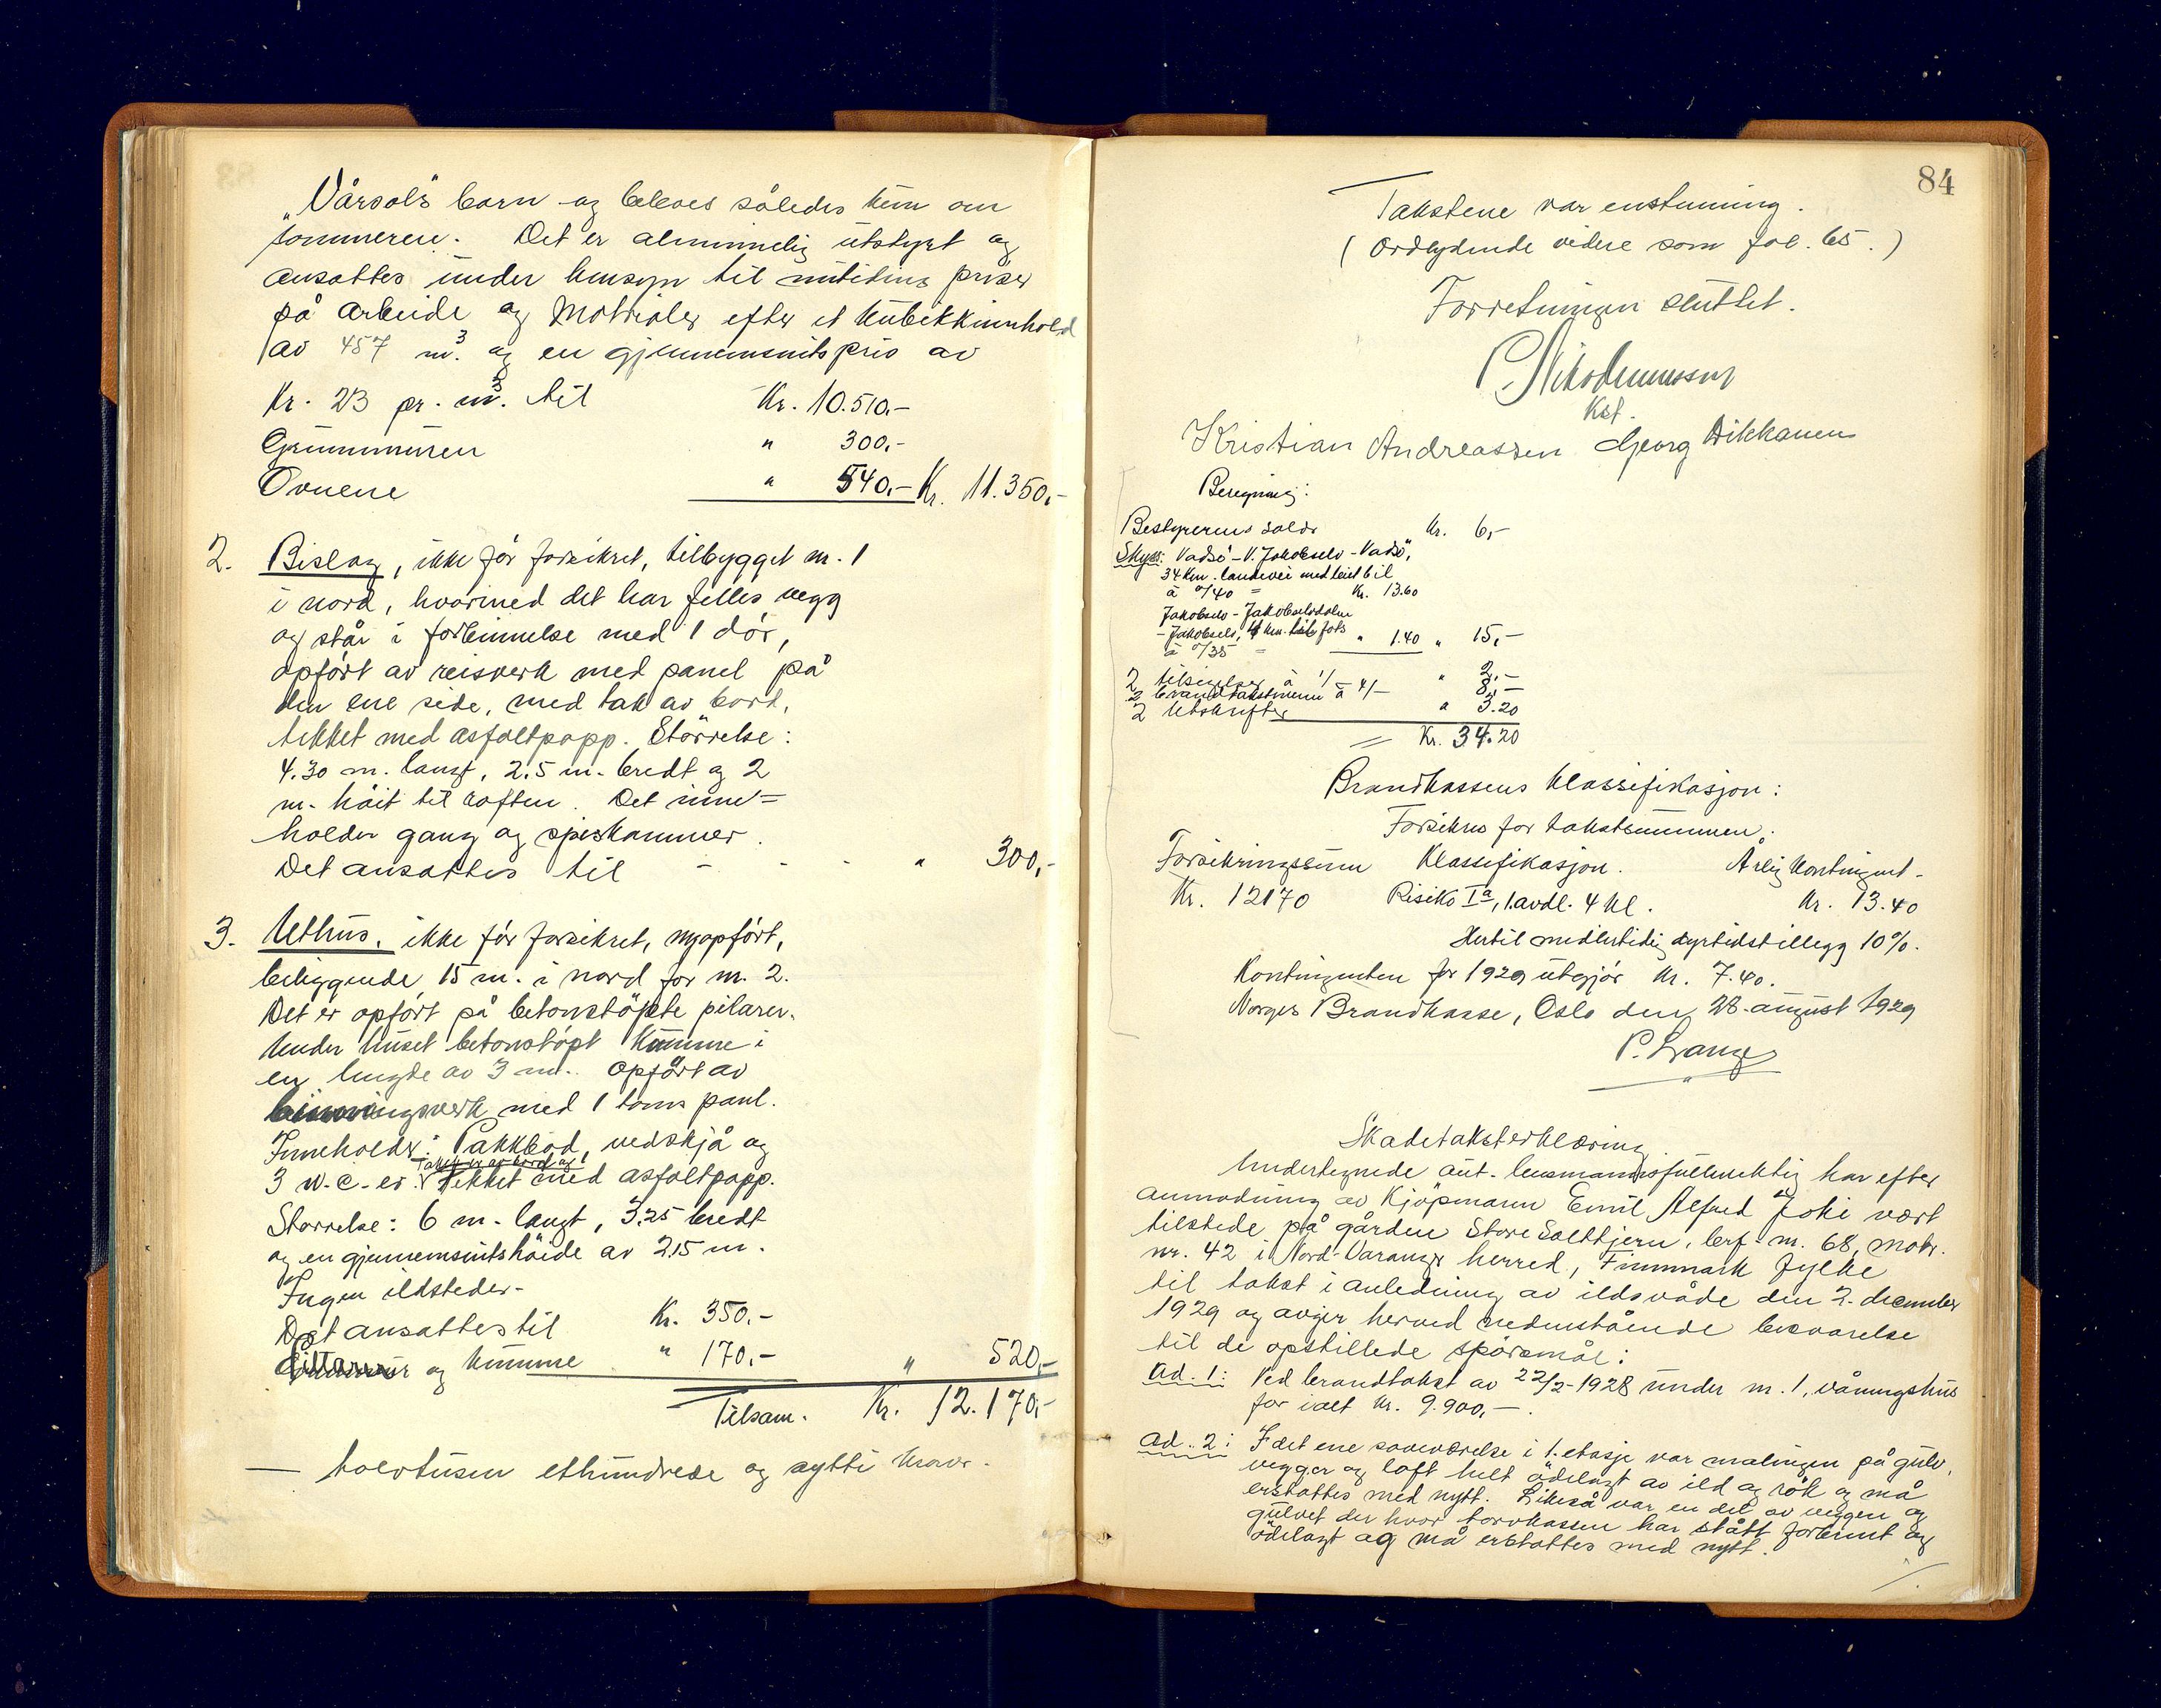 "Vårsols" barn og beboes således kun om
sommeren. Det er alminnelig utstyrt og
ansattes under hensyn til nutidens priser
på arbeide og materialer efter et kubikkinnhold
av 457 m³. og en gjennemsnitspris av
Kr. 23 pr. m³. til Kr. 10.510.-
Grunnmuren " 300.-
Ovnene " 540.- Kr. 11.350.-
2. Bislag, ikke før forsikret, tilbygget nr. 1
i nord, hvormed det har felles vegg
og står i forbinnelse med 1 dør,
opført av reisverk med panel på
den ene side, med tak av bord,
tekket med asfaltpapp. Størrelse:
4.30 m. langt, 2.5 m. bredt og 2
m. høit til raften. Det inne=
holder gang og spiskammer.
Det ansattes til - - - " 300,-
3. Uthus, ikke før forsikret, nyopført,
beliggende 15 m. i nord for nr. 2.
Det er opført på betonstøpte pilarer.
Under huset betonstøpt kumme i
en lengde av 3 m. Opført av
binningsverk med 1 toms panl.
Inneholder: Pakkbod, vedskjå og
Taket er av bord og
3 w.c.er. tekket med asfaltpapp.
Størrelse: 6 m. langt, 3,25 bredt
og en gjennemsnitshøide av 2,15 m.
Ingen ildsteder.
Det ansattes til Kr. 350.-
og kumme " 170.- " 520,-
Tilsam. Kr. 12.170,-
— tolvtusen etthundrede og sytti kroner.
84
Takstene var enstemmig.
(Ordlydende videre som fol. 65.)
Forretningen sluttet.
P. Nikodemussen
Kst.
Kristian Andreassen Georg Dikkanen
Beregning:
Bestyrerens salær Kr. 6,-
Skyss: Vadsø - V. Jakobselv - Vadsø,
34 km. landevei med leiet bil
à 0/40 = Kr. 13.60
Jakobselv - Jakobselvdalen
- Jakobselv, 4 km. tilfots
à 0/35 = " 1.40 " 15,-
2 tilsigelser à 1/- " 2,-
2 brandtakstmenn à 4/- 8,-
2 Utskrifter " 3.20
= Kr. 34.20
Brandkassens klassifikasjon:
Forsikres for takstsummen.
Forsikringssum Klassifikasjon. Årlig kontingent.
Kr. 12170 Risiko Iª, 1. avdl. 4 kl. Kr. 13.40
Hertil midlertidig dyrtidstillegg 10%.
Kontingenten for 1929 utgjør Kr. 7.40.
Norges Brandkasse, Oslo den 28. august 1929
P. Lange
Skadetaksterklæring
Undertegnede aut. lensmannsfullmektig har efter
anmodning av Kjøpmann Emil Alfred Joki vært
tilstede på gården Store Salttjern, brf. nr. 68, matr.
nr. 42 i Nord-Varanger herred, Finnmark fylke
til takst i anledning av ildsvåde den 2. december
1929 og avgir herved nedenstående besvarelse
til de opstillede spørsmål:
Ad. 1: Ved brandtakst av 22/2-1928 under nr. 1, våningshus
for ialt Kr. 9.900,-.
Ad. 2: I det ene soveværelse i 1. etasje var malingen på gulv,
vegger og loft helt ødelagt av ild og røk og må
erstattes med nytt. Likeså var en del av veggen og
gulvet der hvor torvkassen har stått forbrent og
ødelagt og må erstattes med nytt.